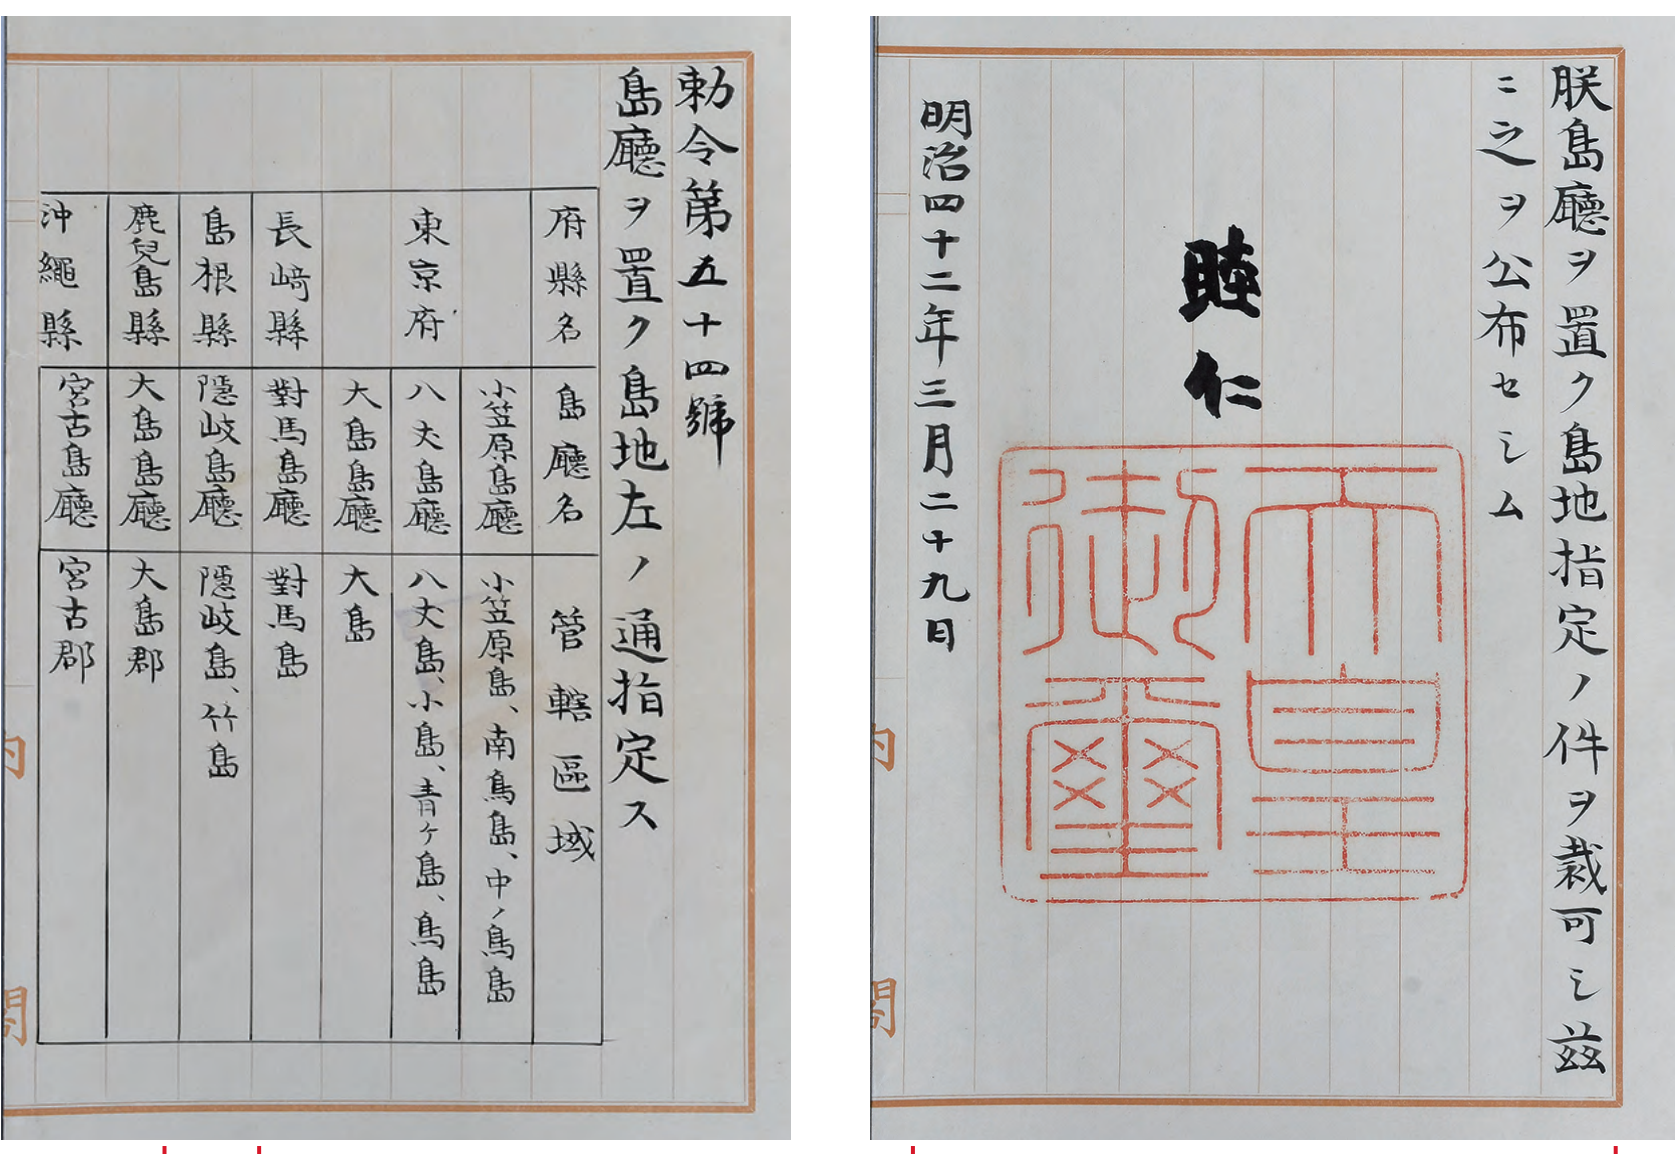 朕島廳ヲ置ク島地指定ノ件ヲ裁可シ茲
ニ之ヲ公布セシム
睦仁
天皇
御璽
明治四十二年三月二十九日
勅令第五十四號
島廳ヲ置ク島地左ノ通指定ス
府縣名 島廳名 管轄區域
小笠原島廳 小笠原島、南鳥島、中ノ鳥島
東京府 八丈島廳 八丈島、小島、青ヶ島、鳥島
大島島廳 大島
長崎縣 對馬島廳 對馬島
島根縣 隱岐島廳 隱岐島、竹島
鹿兒島縣 大島島廳 大島郡
沖繩縣 宮古島廳 宮古郡